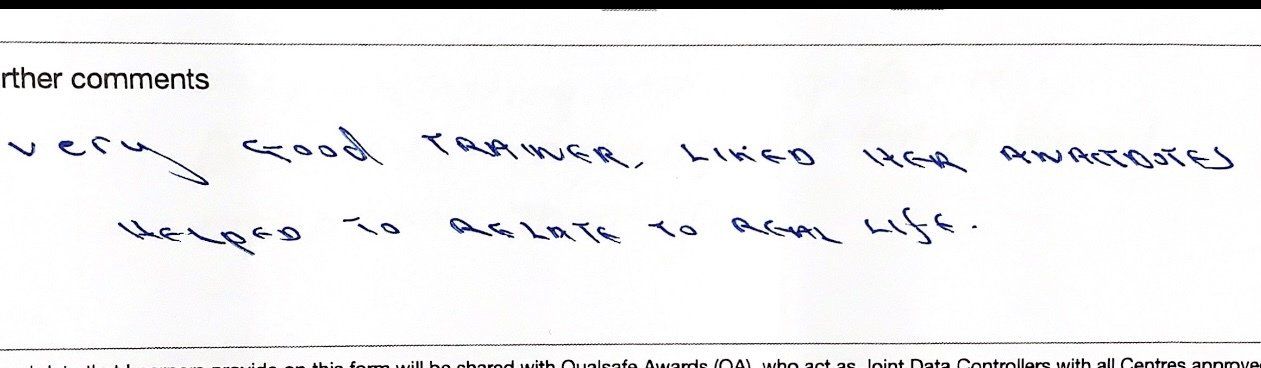 rther comments
very Good TRAINER, LIKED HER ANACTDOTES
HELPED TO RELATE TO REAL LIFE.
provide on this form will be shared with Qualsafe Awards (QA), who act as Joint Data Controllers with all Centres approve